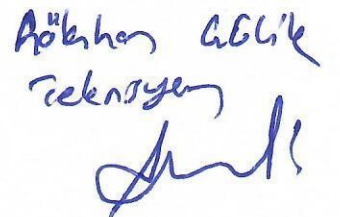 Gökhan ÇELİK
Teknisyen